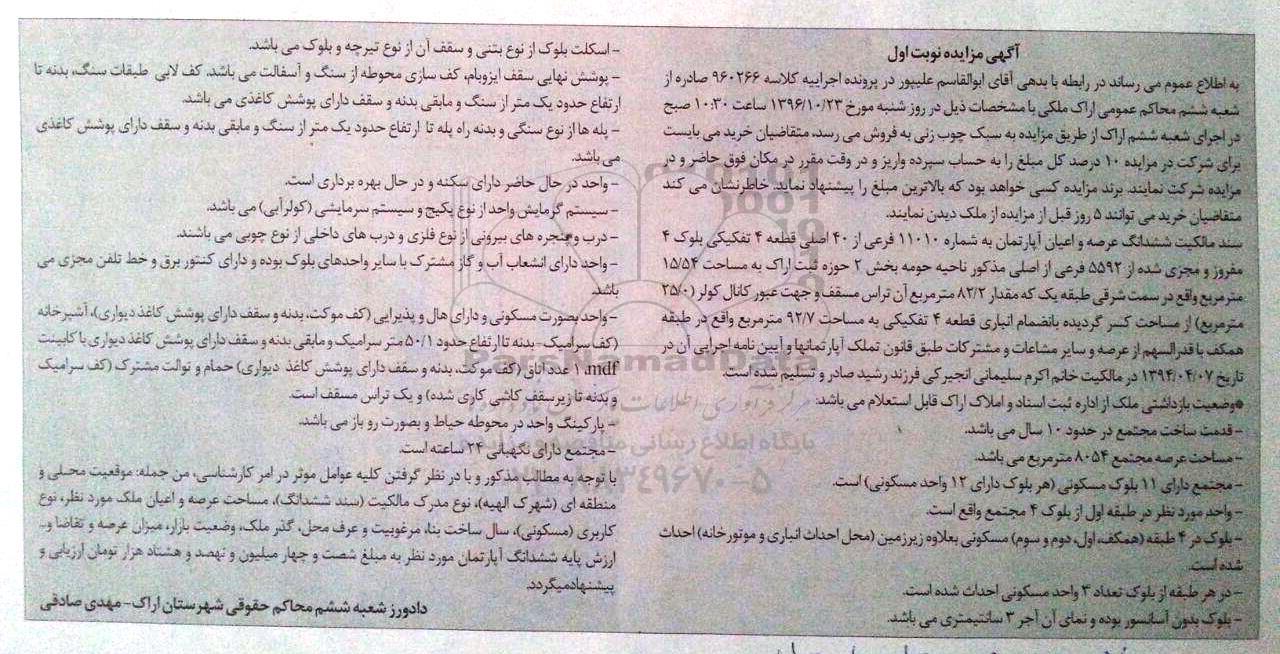 آگهی مزایده نوبت اول
به اطلاع عموم می رساند در رابطه با بدهی آقای ابوالقاسم علیپور در پرونده اجراییه کلاسه ۹۶۰۲۶۶ صادره از
شعبه ششم محاکم عمومی اراک ملکی با مشخصات ذیل در روز شنبه مورخ ۱۳۹۶/۱۰/۲۳ ساعت ۱۰:۳۰ صبح
در اجرای شعبه ششم اراک از طریق مزایده به سبک چوب زنی به فروش می رسد، متقاضیان خرید می بایست
برای شرکت در مزایده ۱۰ درصد کل مبلغ را به حساب سپرده واریز و در وقت مقرر در مکان فوق حاضر و در
مزایده شرکت نمایند. برند مزایده کسی خواهد بود که بالاترین مبلغ را پیشنهاد نماید. خاطرنشان می کند
متقاضیان خرید می توانند ۵ روز قبل از مزایده از ملک دیدن نمایند.
سند مالکیت ششدانگ عرصه و اعیان آپارتمان به شماره ۱۱۰۱۰ فرعی از ۴۰ اصلی قطعه ۴ تفکیکی بلوک ۴
مفروز و مجزی شده از ۵۵۹۲ فرعی از اصلی مذکور ناحیه حومه بخش ۲ حوزه ثبت اراک به مساحت ۱۵/۵۴
مترمربع واقع در سمت شرقی طبقه یک که مقدار ۸۲/۲ مترمربع آن تراس مسقف و جهت عبور کانال کولر (۲۵/۰
مترمربع) از مساحت کسر گردیده بانضمام انباری قطعه ۴ تفکیکی به مساحت ۹۲/۷ مترمربع واقع در طبقه
همکف با قدرالسهم از عرصه و سایر مشاعات و مشترکات طبق قانون تملک آپارتمانها و آیین نامه اجرایی آن در
تاریخ ۱۳۹۴/۰۴/۰۷ در مالکیت خانم اکرم سلیمانی انجیرکی فرزند رشید صادر و تسلیم شده است.
*وضعیت بازداشتی ملک از اداره ثبت اسناد و املاک اراک قابل استعلام می باشد.
- قدمت ساخت مجتمع در حدود ۱۰ سال می باشد.
- مساحت عرصه مجتمع ۸۰۵۴ مترمربع می باشد.
- مجتمع دارای ۱۱ بلوک مسکونی (هر بلوک دارای ۱۲ واحد مسکونی) است.
- واحد مورد نظر در طبقه اول از بلوک ۴ مجتمع واقع است.
- بلوک در ۴ طبقه (همکف، اول، دوم و سوم) مسکونی بعلاوه زیرزمین (محل احداث انباری و موتورخانه) احداث
شده است.
- در هر طبقه از بلوک تعداد ۳ واحد مسکونی احداث شده است.
- بلوک بدون آسانسور بوده و نمای آن آجر ۳ سانتیمتری می باشد.
- اسکلت بلوک از نوع بتنی و سقف آن از نوع تیرچه و بلوک می باشد.
- پوشش نهایی سقف ایزوبام، کف سازی محوطه از سنگ و آسفالت می باشد. کف لابی طبقات سنگ، بدنه تا
ارتفاع حدود یک متر از سنگ و مابقی بدنه و سقف دارای پوشش کاغذی می باشد.
- پله ها از نوع سنگی و بدنه راه پله تا ارتفاع حدود یک متر از سنگ و مابقی بدنه و سقف دارای پوشش کاغذی
می باشد.
- واحد در حال حاضر دارای سکنه و در حال بهره برداری است.
- سیستم گرمایش واحد از نوع پکیج و سیستم سرمایشی (کولرآبی) می باشد.
- درب و پنجره های بیرونی از نوع فلزی و درب های داخلی از نوع چوبی می باشند.
- واحد دارای انشعاب آب و گاز مشترک با سایر واحدهای بلوک بوده و دارای کنتور برق و خط تلفن مجزی می
باشد.
- واحد بصورت مسکونی و دارای هال و پذیرایی (کف موکت، بدنه و سقف دارای پوشش کاغذ دیواری)، آشپزخانه
(کف سرامیک-بدنه تا ارتفاع حدود ۵۰/۱ متر سرامیک و مابقی بدنه و سقف دارای پوشش کاغذ دیواری با کابینت
mdf، ۱ عدد اتاق (کف موکت، بدنه و سقف دارای پوشش کاغذ دیواری) حمام و توالت مشترک (کف سرامیک
و بدنه تا زیر سقف کاشی کاری شده) و یک تراس مسقف است.
- پارکینگ واحد در محوطه حیاط و بصورت رو باز می باشد.
- مجتمع دارای نگهبانی ۲۴ ساعته است.
با توجه به مطالب مذکور و با در نظر گرفتن کلیه عوامل موثر در امر کارشناسی، من جمله: موقعیت محلی و
منطقه ای (شهرک الهیه)، نوع مدرک مالکیت (سند ششدانگ)، مساحت عرصه و اعیان ملک مورد نظر، نوع
کاربری (مسکونی)، سال ساخت بنا، مرغوبیت و عرف محل، گذر ملک، وضعیت بازار، میزان عرضه و تقاضا و...
ارزش پایه ششدانگ آپارتمان مورد نظر به مبلغ شصت و چهار میلیون و نهصد و هشتاد هزار تومان ارزیابی و
پیشنهاد میگردد.
دادورز شعبه ششم محاکم حقوقی شهرستان اراک- مهدی صادقی
ParsNamadData
پایگاه اطلاع رسانی مناقصه و مزایده